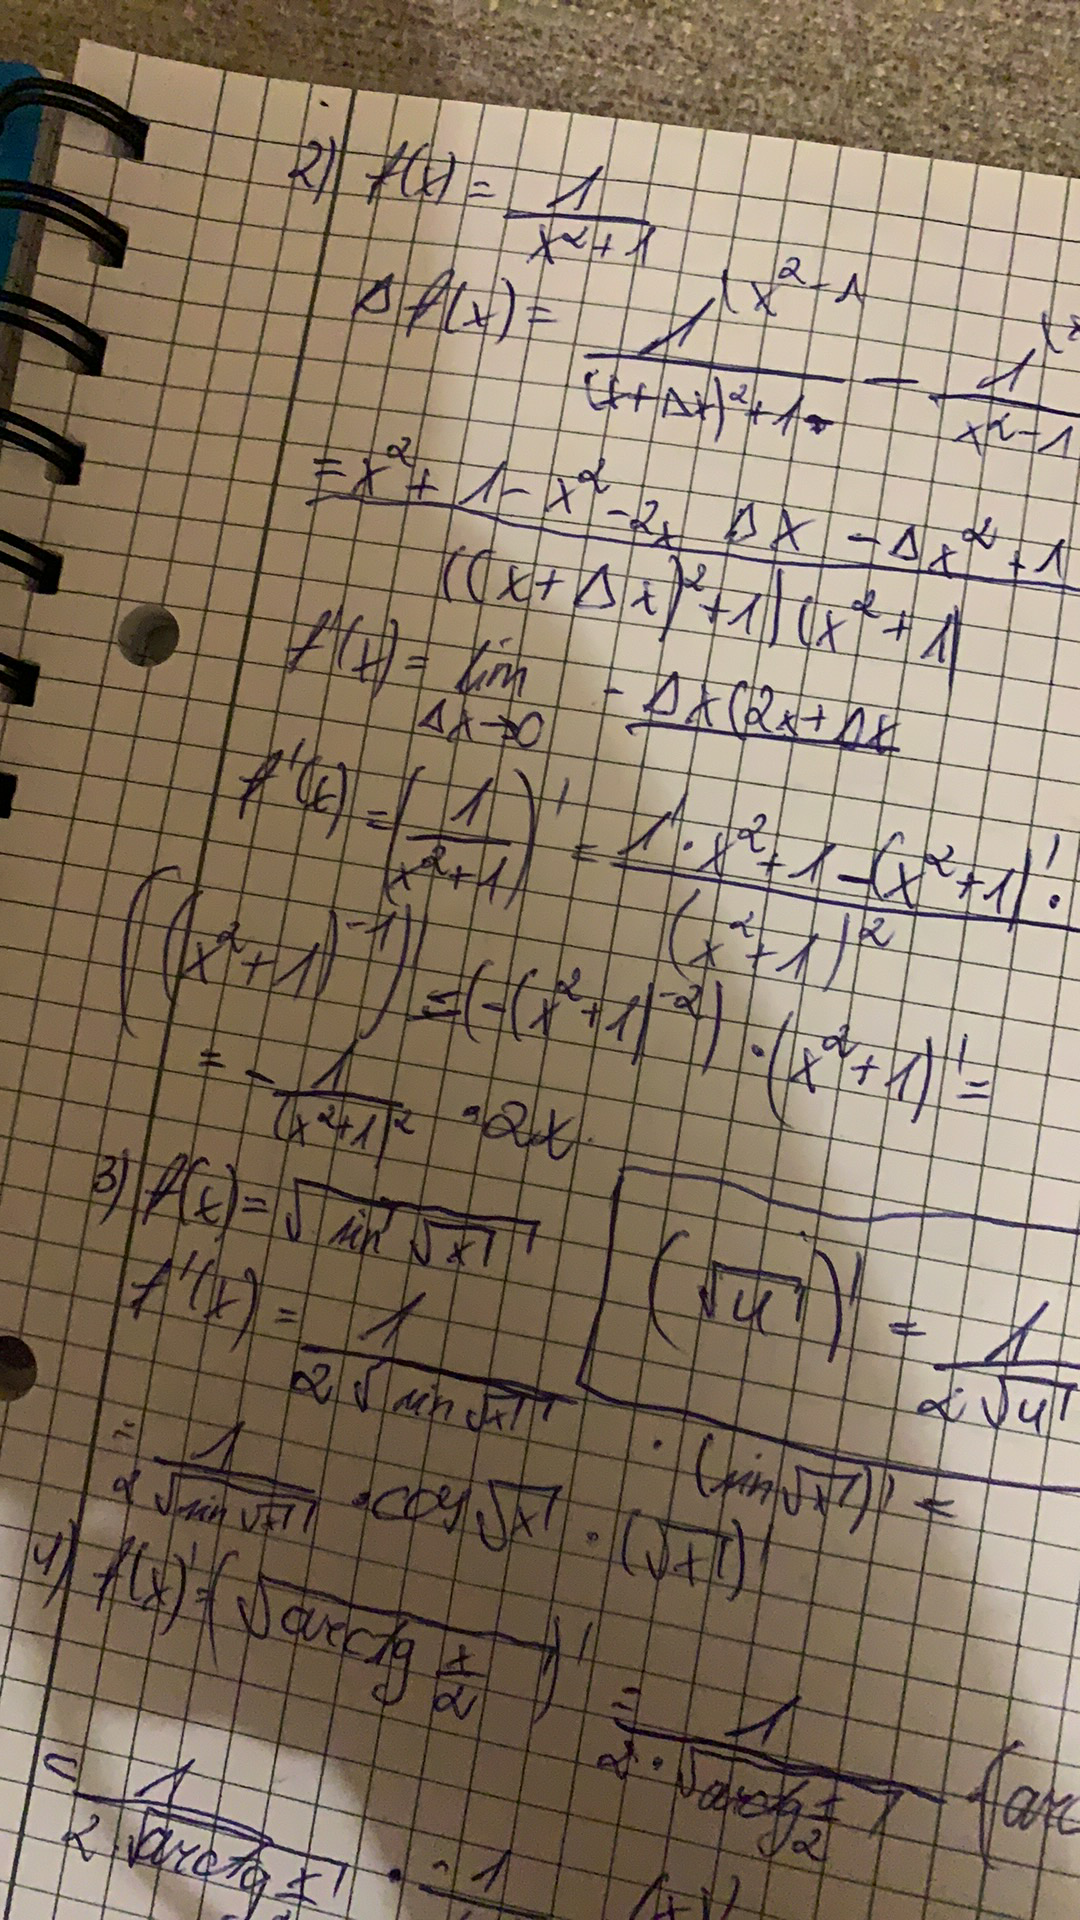 2) f(x) = 1/(x²+1)
Δf(x) = 1/((x+Δx)²+1) (x²-1 - 1/(x²-1)
= (x²+1-x²-2x Δx -Δx²+1)/(((x+Δx)²+1)(x²+1)
f'(x) = lim Δx→0 -Δx(2x+Δx
f'(x) = (1/(x²+1))' = (1'·x²+1-(x²+1)'·)/(x²+1)²
((x²+1)⁻¹)' = (-(x²+1)⁻²)·(x²+1)' =
= -1/(x²+1)² ·2x.
3) f(x) = √(sin √x)
(√u)' = 1/(2√u)
f'(x) = 1/(2√(sin √x)) · (sin √x)' =
= 1/(2√(sin √x)) · cos √x · (√x)'
4) f(x)' = (√(arctg x/2))' = 1/(2·√(arctg x/2)) (arc
= 1/(2·√(arctg x/2)) · 1